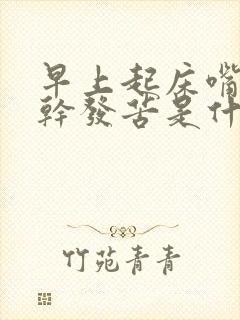 早上起床嘴
幹發苦是什
竹苑青青